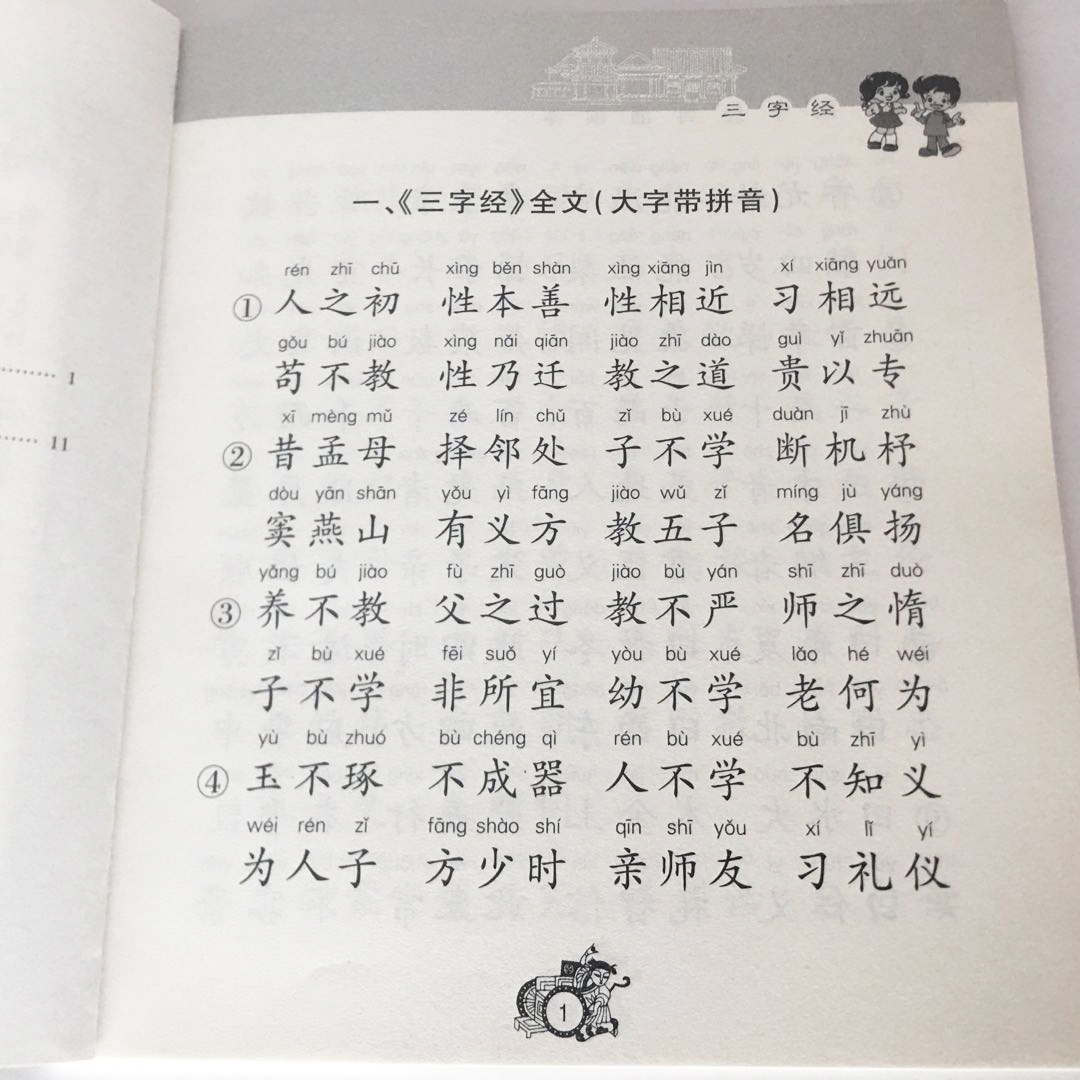 三字经
一、《三字经》全文(大字带拼音)
rén zhī chū xìng běn shàn xìng xiāng jìn xí xiāng yuǎn
①人之初 性本善 性相近 习相远
gǒu bú jiào xìng nǎi qiān jiào zhī dào guì yǐ zhuān
苟不教 性乃迁 教之道 贵以专
xī mèng mǔ zé lín chǔ zǐ bù xué duàn jī zhù
②昔孟母 择邻处 子不学 断机杼
dòu yān shān yǒu yì fāng jiào wǔ zǐ míng jù yáng
窦燕山 有义方 教五子 名俱扬
yǎng bú jiào fù zhī guò jiào bù yán shī zhī duò
③养不教 父之过 教不严 师之惰
zǐ bù xué fēi suǒ yí yòu bù xué lǎo hé wéi
子不学 非所宜 幼不学 老何为
yù bù zhuó bù chéng qì rén bù xué bù zhī yì
④玉不琢 不成器 人不学 不知义
wéi rén zǐ fāng shào shí qīn shī yǒu xí lǐ yí
为人子 方少时 亲师友 习礼仪
1
1
11